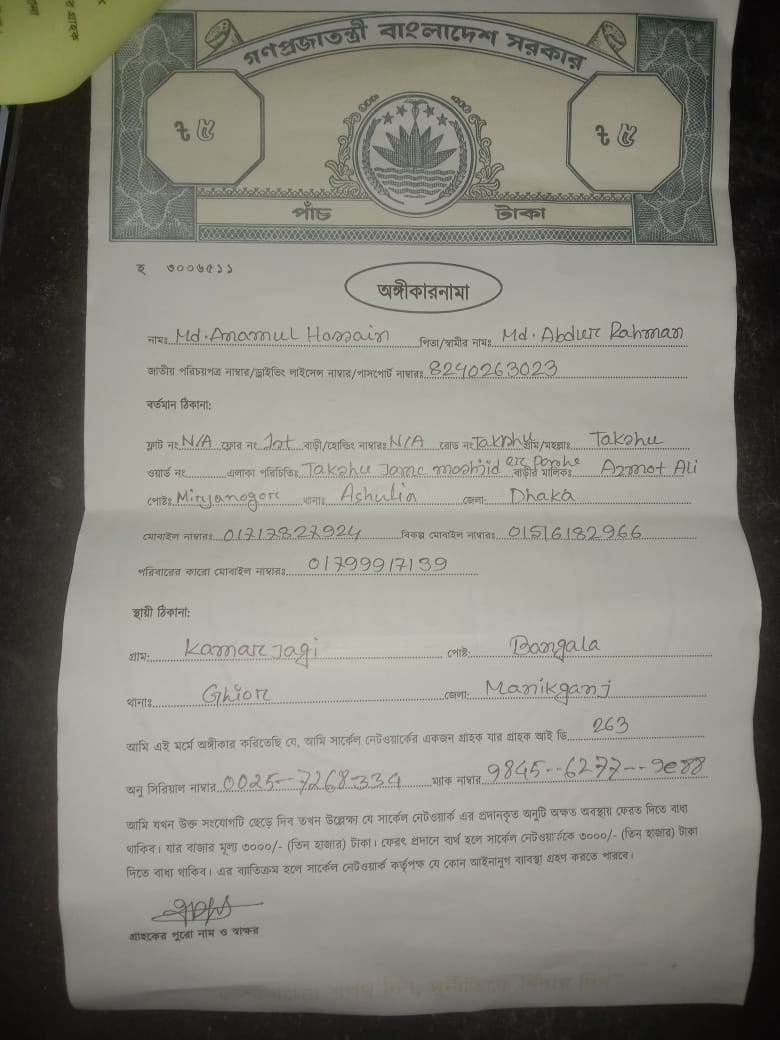 গণপ্রজাতন্ত্রী বাংলাদেশ সরকার
৳ ৫ ৳ ৫
পাঁচ টাকা
হ ৩০০৬৫১১
অঙ্গীকারনামা
নামঃ Md. Anamul Hossain পিতা/স্বামীর নামঃ Md. Abdur Rahman
জাতীয় পরিচয়পত্র নাম্বার/ড্রাইভিং লাইসেন্স নাম্বার/পাসপোর্ট নাম্বারঃ 8240263023
বর্তমান ঠিকানা:
ফ্লাট নং N/A ফ্লোর নং 1st বাড়ী/হোল্ডিং নাম্বারঃ N/A রোড নং Takshu গ্রাম/মহল্লাঃ Takshu
ওয়ার্ড নং এলাকা পরিচিতিঃ Takshu Jame moshjid er পাশে বাড়ীর মালিকঃ Azmot Ali
পোষ্টঃ Mirjanogor থানাঃ Ashulia জেলা: Dhaka
মোবাইল নাম্বারঃ 01717827924 বিকল্প মোবাইল নাম্বারঃ 01516182966
পরিবারের কারো মোবাইল নাম্বারঃ 01799917139
স্থায়ী ঠিকানা:
গ্রাম: Kamar Jagi পোষ্ট: Bangala
থানাঃ Ghior জেলা: Manikganj
আমি এই মর্মে অঙ্গীকার করিতেছি যে, আমি সার্কেল নেটওয়ার্কের একজন গ্রাহক যার গ্রাহক আই ডি 263
অনু সিরিয়াল নাম্বার 0025--7268-334 ম্যাক নাম্বার 9845--6277--9e88
আমি যখন উক্ত সংযোগটি ছেড়ে দিব তখন উল্লেক্ষ্য যে সার্কেল নেটওয়ার্ক এর প্রদানকৃত অনুটি অক্ষত অবস্থায় ফেরত দিতে বাধ্য
থাকিব। যার বাজার মূল্য ৩০০০/- (তিন হাজার) টাকা। ফেরৎ প্রদানে ব্যর্থ হলে সার্কেল নেটওয়ার্ককে ৩০০০/- (তিন হাজার) টাকা
দিতে বাধ্য থাকিব। এর ব্যতিক্রম হলে সার্কেল নেটওয়ার্ক কর্তৃপক্ষ যে কোন আইনানুগ ব্যবস্থা গ্রহণ করতে পারবে।
গ্রাহকের পুরো নাম ও স্বাক্ষর